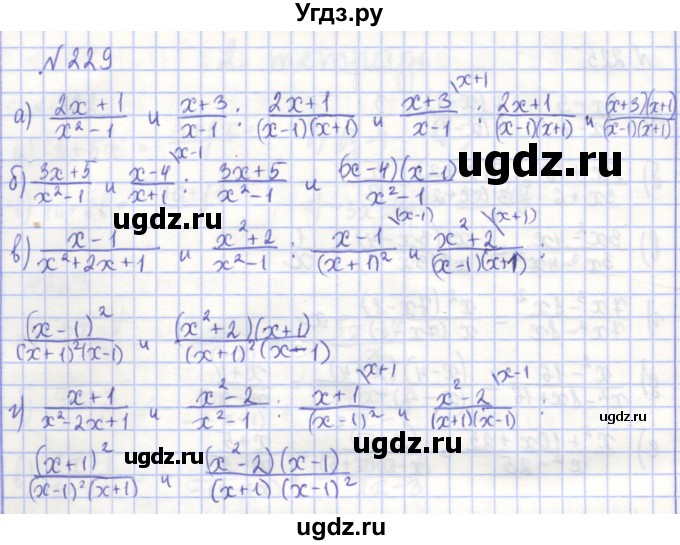 Угдз.ру
№229
а) (2x + 1)/(x² - 1) и (x+3)/(x-1) : (2x+1)/((x-1)(x+1)) и (x+3)/(x-1) \x+1 : (2x+1)/((x-1)(x+1)) и ((x+3)(x+1))/((x-1)(x+1))
ugdz.ru
б) (3x+5)/(x²-1) и (x-4)/(x+1) \x-1 : (3x+5)/(x²-1) и ((x-4)(x-1))/(x²-1)
ugdz.ru
в) (x-1)/(x²+2x+1) и (x²+2)/(x²-1) : (x-1)/(x+1)² \(x-1) и (x²+2)/((x-1)(x+1)) \(x+1) :
ugdz.ru
(x-1)²/((x+1)²(x-1)) и ((x²+2)(x+1))/((x+1)²(x-1))
г) (x+1)/(x²-2x+1) и (x²-2)/(x²-1) : (x+1)/(x-1)² \x+1 и (x²-2)/((x+1)(x-1)) \x-1 :
ugdz.ru
(x+1)²/((x-1)²(x+1)) и ((x²-2)(x-1))/((x+1)(x-1)²)
ugdz.ru
ugdz.ru